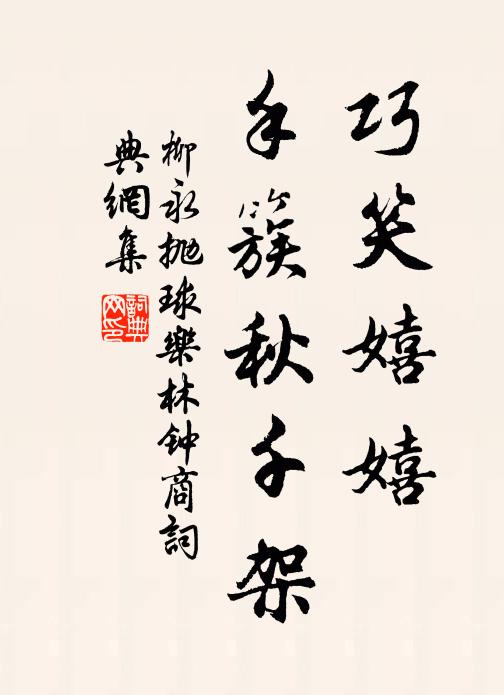 巧笑嬉嬉
手簇秋千架
柳永抛球樂林钟商詞
典網集
詞典網印